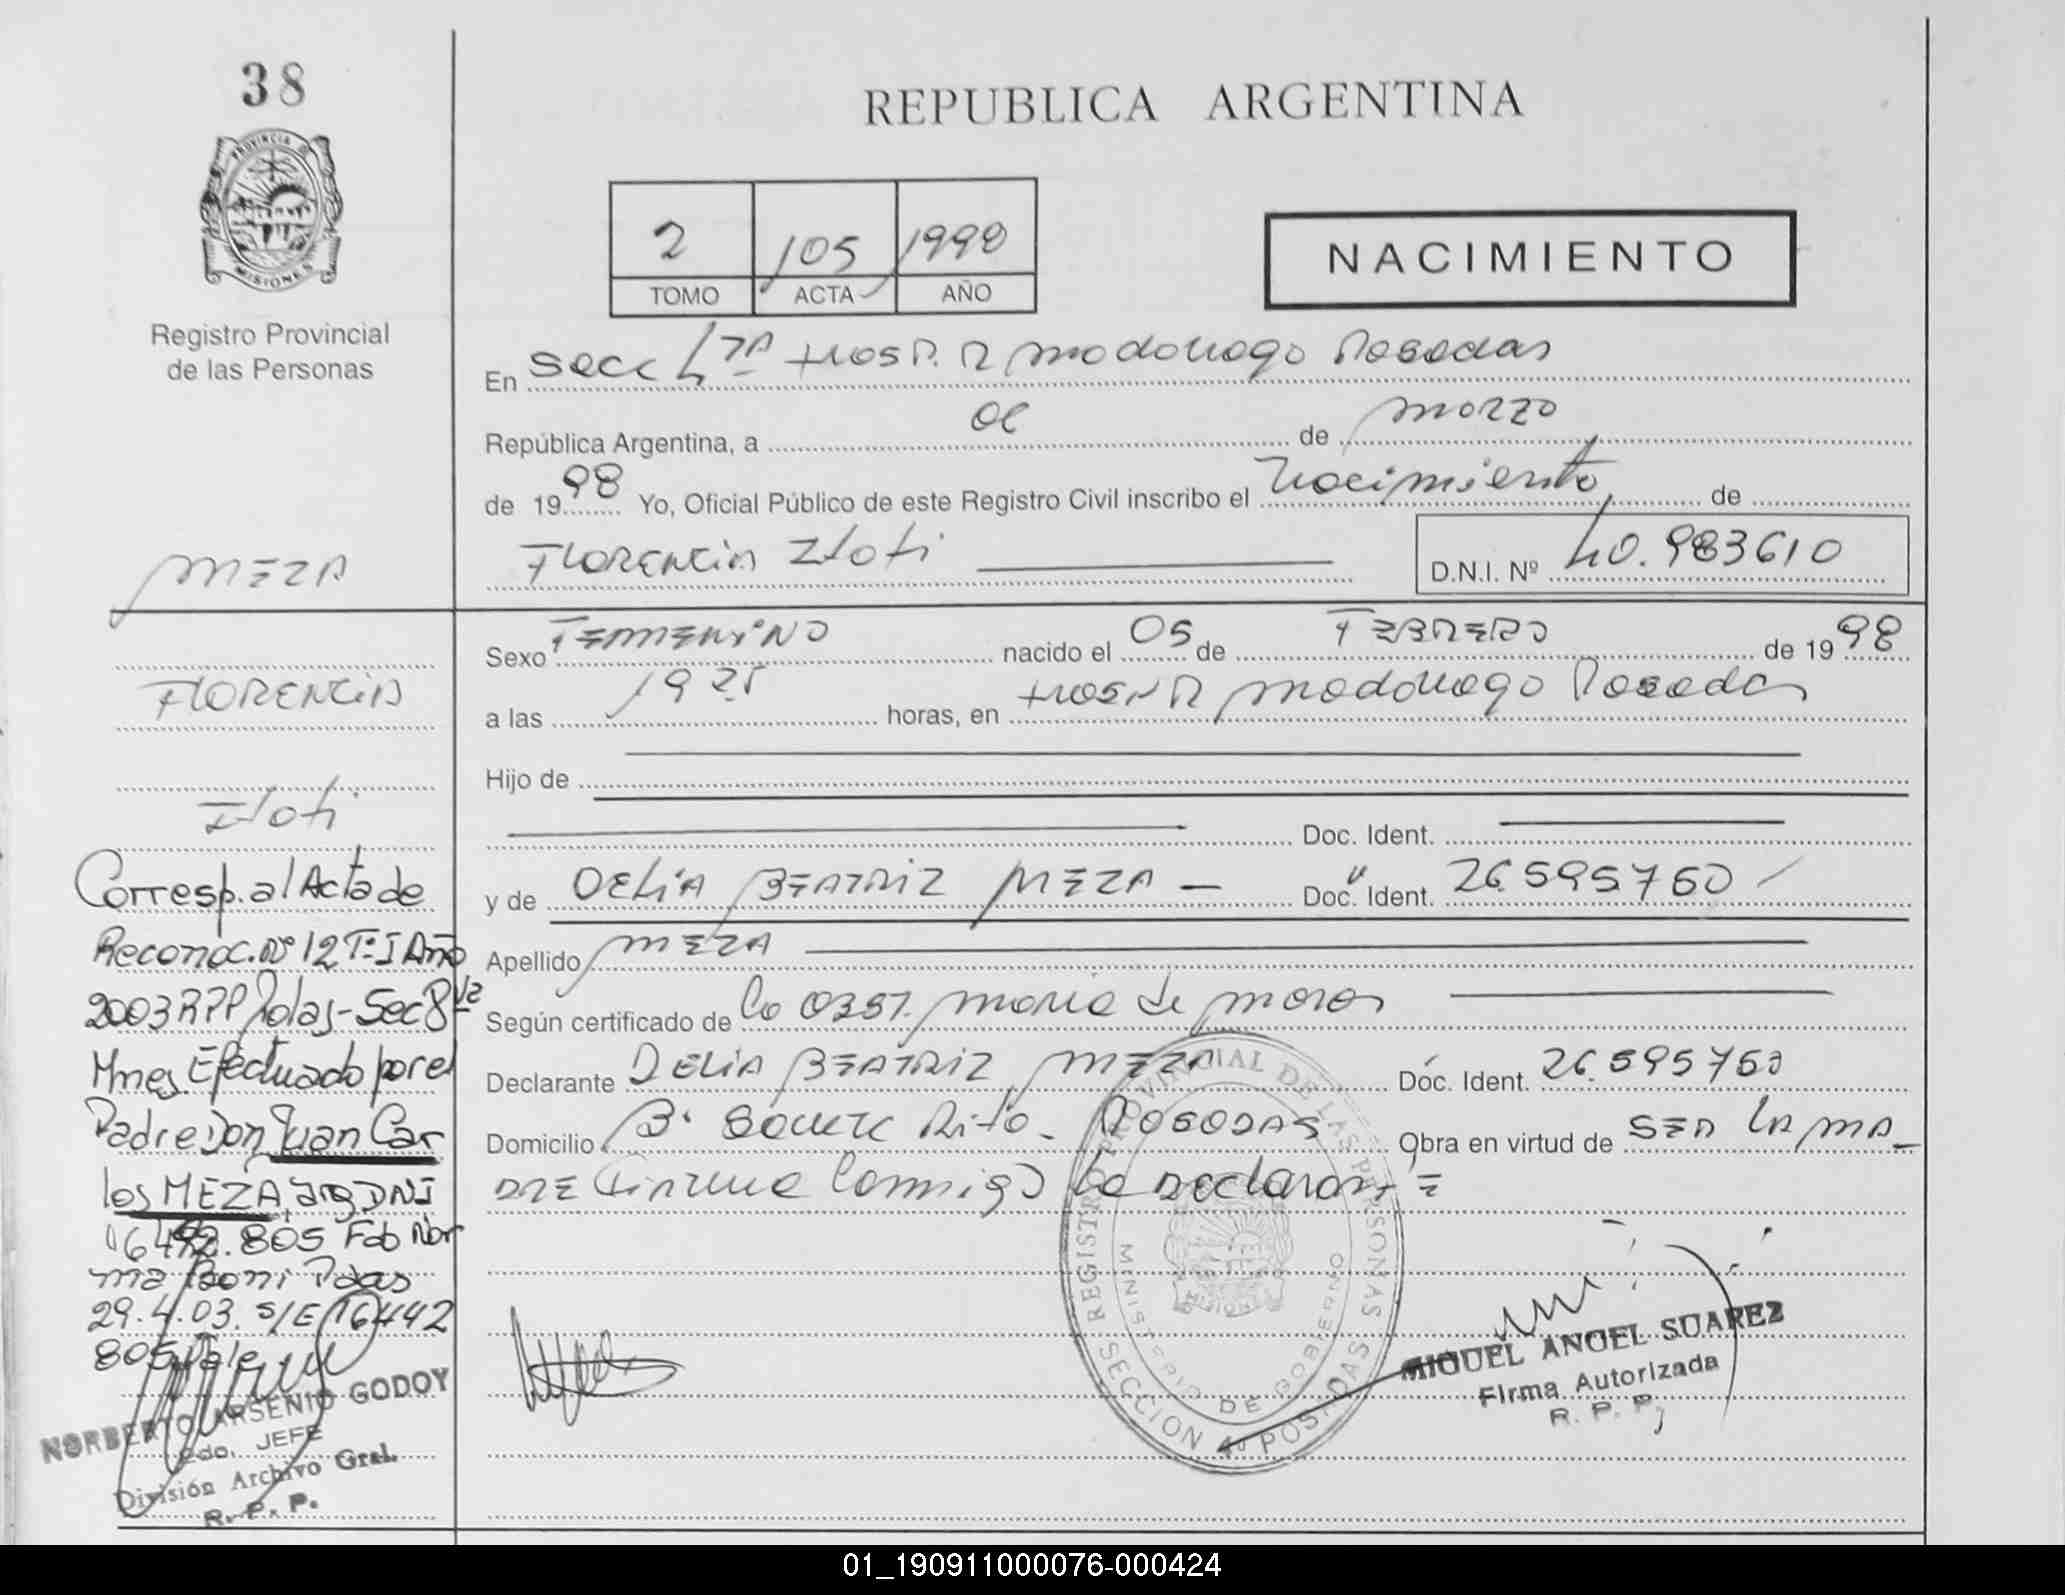 38
PROVINCIA D
MISIONES
Registro Provincial
de las Personas
REPUBLICA ARGENTINA
2 105 1998
TOMO ACTA AÑO
NACIMIENTO
En Secc 4ta Hosp. R Madariaga Posadas
República Argentina, a de Marzo
de 1998 Yo, Oficial Público de este Registro Civil inscribo el Nacimiento de
Florencia Itati D.N.I. Nº 40.983610
MEZA
Sexo FEMENINO nacido el 05 de FEBRERO de 1998
a las 1925 horas, en Hosp R Madariaga Posadas
Hijo de
Doc. Ident.
y de DELIA BEATRIZ MEZA — Doc. Ident. 26.595760
Apellido MEZA
Según certificado de la Obst. Maria de
Declarante DELIA BEATRIZ MEZA Doc. Ident. 26.595760
Domicilio Bº Posadas Obra en virtud de SER LA MA-
DRE Firma Conmigo la Declarante
FLORENCIA
Itati
Corresp. al Acta de
Reconoc. Nº 12 Tº I Año
2003 RPP Pdas-Sec 8va
Mnes Efectuado por el
Padre Don Juan Car
los MEZA, arg DNI
16492.805
29.4.03. S/E 16442
805 Vale
NORBERTO ARSENIO GODOY
2do. JEFE
División Archivo Gral.
R. P. P.
REGISTRO PROVINCIAL DE LAS PERSONAS
MINISTERIO DE GOBIERNO
MISIONES
SECCION 4º POSADAS
MIGUEL ANGEL SUAREZ
Firma Autorizada
R. P. P.
01_190911000076-000424